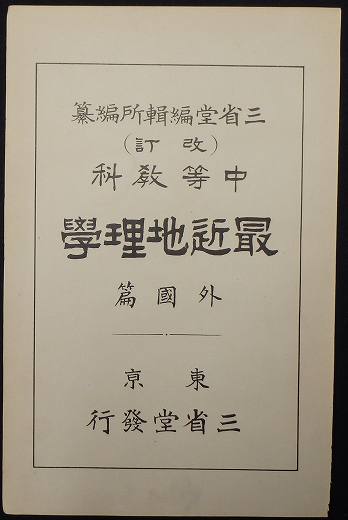 三省堂編輯所編纂
(改訂)
中等教科
最近地理學
外國篇
東京
三省堂發行